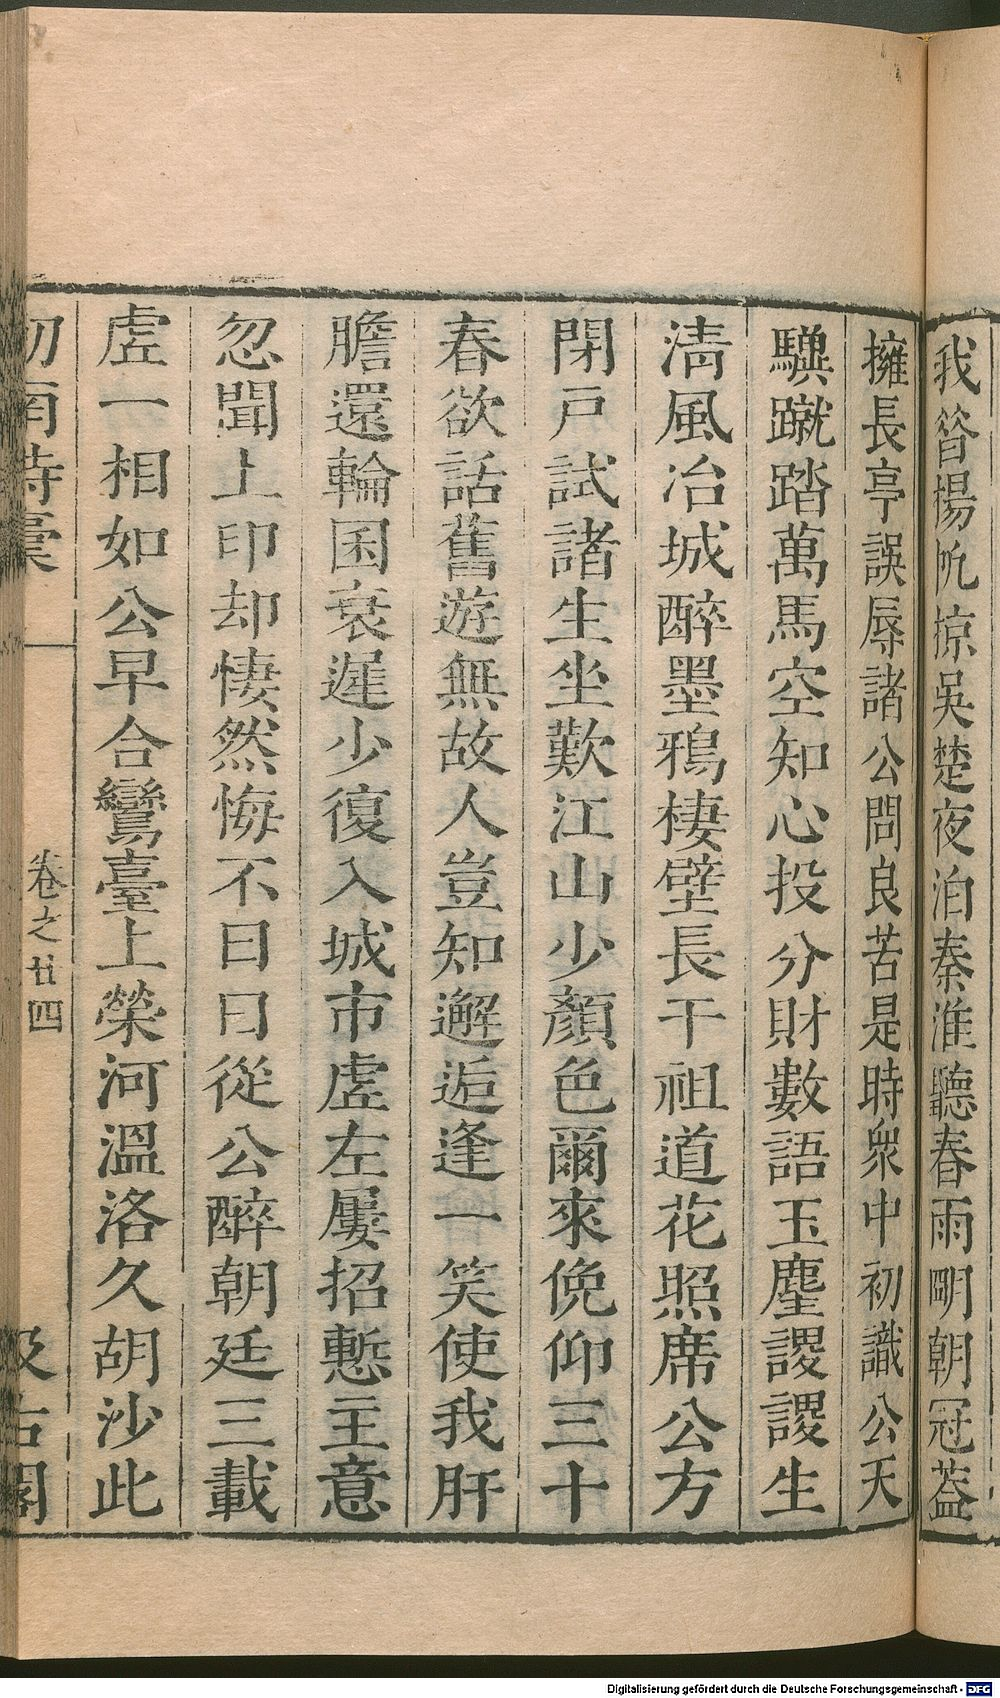 我昝揚帆掠吳楚夜泊秦淮聽春雨明朝冠蓋
擁長亭誤辱諸公問良苦是時衆中初識公天
驥蹴踏萬馬空知心投分財數語玉麈謖謖生
淸風冶城醉墨鴉棲壁長干祖道花照席公方
閉戸試諸生坐歎江山少顏色爾來俛仰三十
春欲話舊遊無故人豈知邂逅逢一笑使我肝
膽還輪囷衰遲少復入城市虛左屢招慙主意
忽聞上印却悽然悔不日日從公醉朝廷三載
虛一相如公早合鸞臺上榮河溫洛久胡沙此
劒南詩稾
卷之廿四
汲古閣
Digitalisierung gefördert durch die Deutsche Forschungsgemeinschaft - DFG